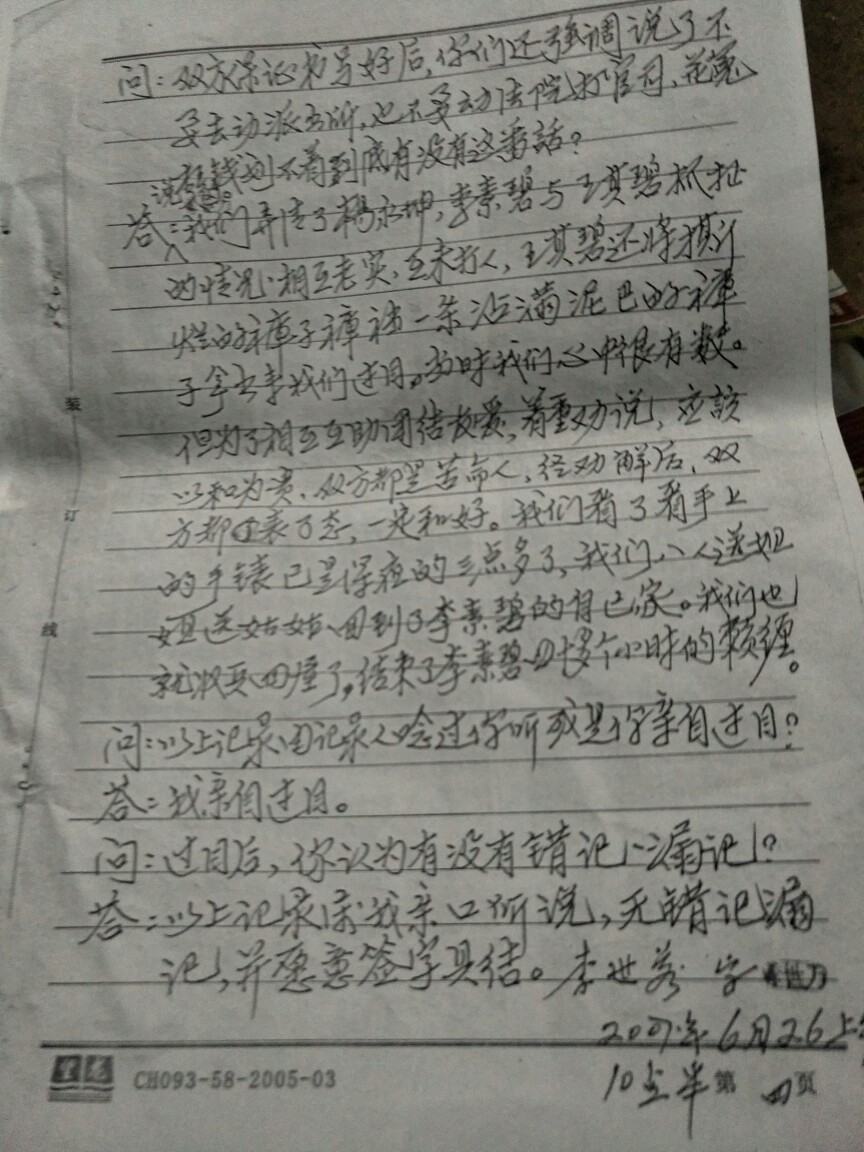 问：双方保证书写好后，你们还强调说了不
要去动派出所，也不要去动法院打官司、花冤
钱划不着到底有没有这番話？
答：说过。我们弄清了楊永坤，李素碧与王其碧抓扯
的情况，相互老实，互未打人，王其碧还将撕
烂的裤子裤裆一条沾满泥巴的裤
子拿出来我们过目。当时我们心中很有数。
但为了相互互助团结友爱，着重劝说，应該
以和为贵，双方都是苦命人，经劝解后，双
方都表了态，一定和好。我们看了看手上
的手錶已是深夜的三点多了，我们八人送姐
姐送姑姑、回到了李素碧的自已家。我们也
就收兵回屋了，结束了李素碧十多个小时的赖缠。
问：以上记录由记录人唸过你听或是你亲自过目？
答：我亲自过目。
问：过目后，你认为有没有错记、漏记？
答：以上记录属我亲口所说，无错记漏
记，并愿意签字具结。李世芳 字
2007年6月26上午
10点半
装
订
线
CH093-58-2005-03
第四页